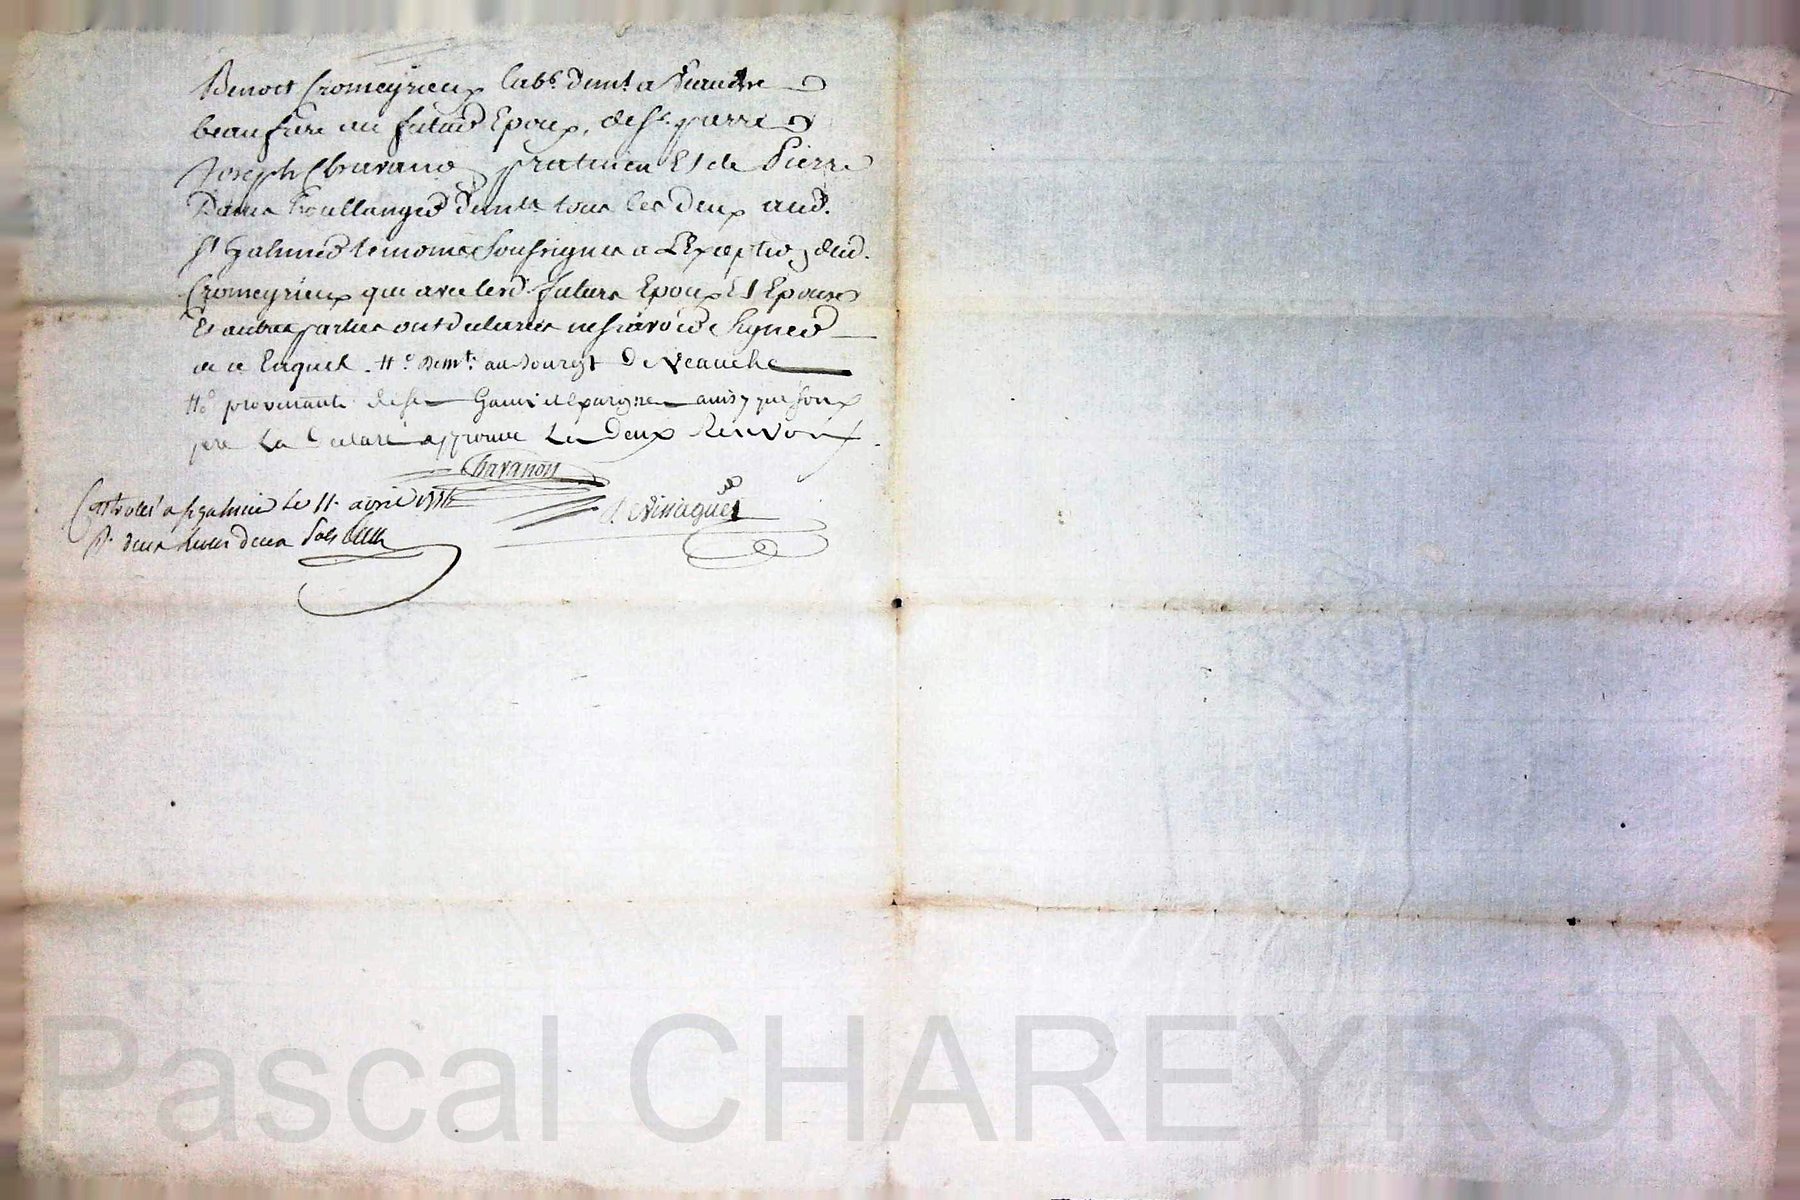 Benoit Cromeyrieux lab.r dem.t a Veauche
beaufrere au futur Epoux, de s.r pierre
Joseph Chavanon praticien Et de Pierre
boullanger dem.ts tous les deux aud.
S.t Galmier temoins Soussignes a L'Exception dud.
Cromeyrieux qui avec lesd. futurs Epoux Et Epouse
Et autres parties ont declarés ne sçavoir Signer
de ce Enquis. dem.t. au bourgt De Veauche
provenante de ses Gains et Epargnes ainsy que son
pere La declaré approuvé Les Deux Renvois
Chavanon
Controlé a s.t galmier Le 11. avril
R. deux livres deux sols